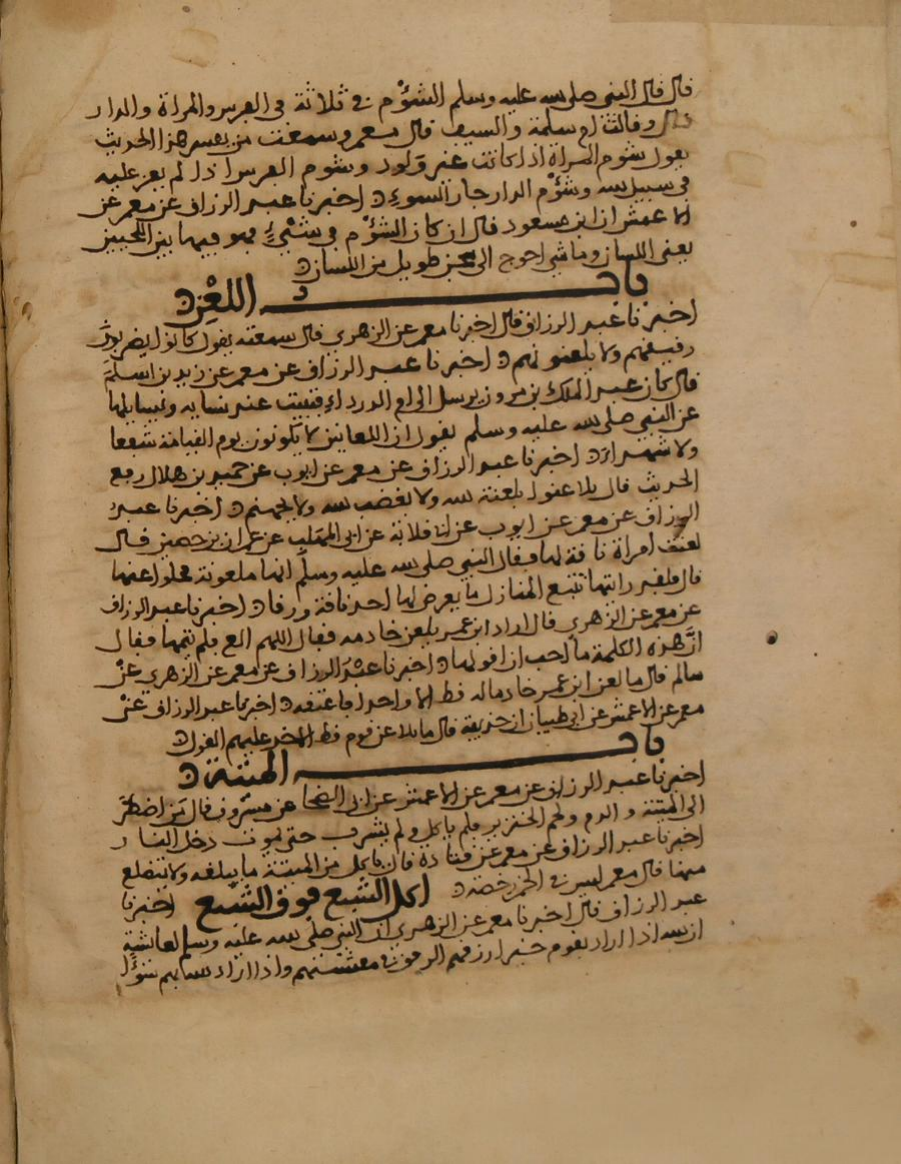 قال قال النبي صلى الله عليه وسلم الشؤم في ثلاثة في الفرس والمراة والدار
قال وقالت ام سلمة والسيف قال معمر وسمعت من يفسر هذا الحديث
يقول شوم المراة اذا كانت غير ولود وشوم الفرس اذا لم يغز عليه
في سبيل الله وشؤم الدار جار السوء اخبرنا عبد الرزاق عن معمر عن
الاعمش ان ابن مسعود قال ان كان الشؤم في شيء فهو فيما بين اللحيين
يعني اللسان وما شي احوج الى سجن طويل من اللسان
باب اللعن
اخبرنا عبد الرزاق قال اخبرنا معمر عن الزهري قال سمعته يقول كانوا يضربون
رقيقهم ولا يلعنونهم اخبرنا عبد الرزاق عن معمر عن زيد بن اسلم
قال كان عبد الملك بن مرون يرسل الى ام الدرداء فتبيت عند نسايه ويسايلها
عن النبي صلى الله عليه وسلم يقول ان اللعانين لا يكونون يوم القيامة شفعا
ولا شهدا اخبرنا عبد الرزاق عن معمر عن ايوب عن حميد بن هلال رفع
الحديث قال لا تلاعنوا بلعنة الله ولا بغضب الله ولا بجهنم اخبرنا عبد
الرزاق عن معمر عن ايوب عن ابي قلابة عن ابي المهلب عن عمران بن حصين قال
لعنت امراة ناقة لها فقال النبي صلى الله عليه وسلم انها ملعونة فخلوا عنها
قال فلقد رايتها تتبع المنازل ما يعرض لها احد ناقة ورقا اخبرنا عبد الرزاق
عن معمر عن الزهري قال اراد ابن عمر يلعن خادمه فقال اللهم الع فلم يتمها فقال
ان هذه الكلمة ما احب ان اقولها اخبرنا عبد الرزاق عن معمر عن الزهري عن
سالم قال ما لعن ابن عمر خادما له قط الا واحدا فاعتقه اخبرنا عبد الرزاق عن
معمر عن الاعمش عن ابي ظبيان ان حذيفة قال ما تلاعن قوم قط الا حق عليهم القول
باب الميتة
اخبرنا عبد الرزاق عن معمر عن الاعمش عن ابي الضحا عن مسروق قال من اضطر
الى الميتة والدم ولحم الخنزير فلم ياكل ولم يشرب حتى يموت دخل النار
اخبرنا عبد الرزاق عن معمر عن قتادة قال ياكل من الميتة ما يبلغه ولا يتضلع
منها قال معمر ليس في الخمر رخصة اكل الشبع فوق الشبع اخبرنا
عبد الرزاق قال اخبرنا معمر عن الزهري ان النبي صلى الله عليه وسلم لعائشة
ان الله اذا اراد بقوم خيرا رزقهم الرفق في معيشتهم واذا اراد الله بهم سوءا